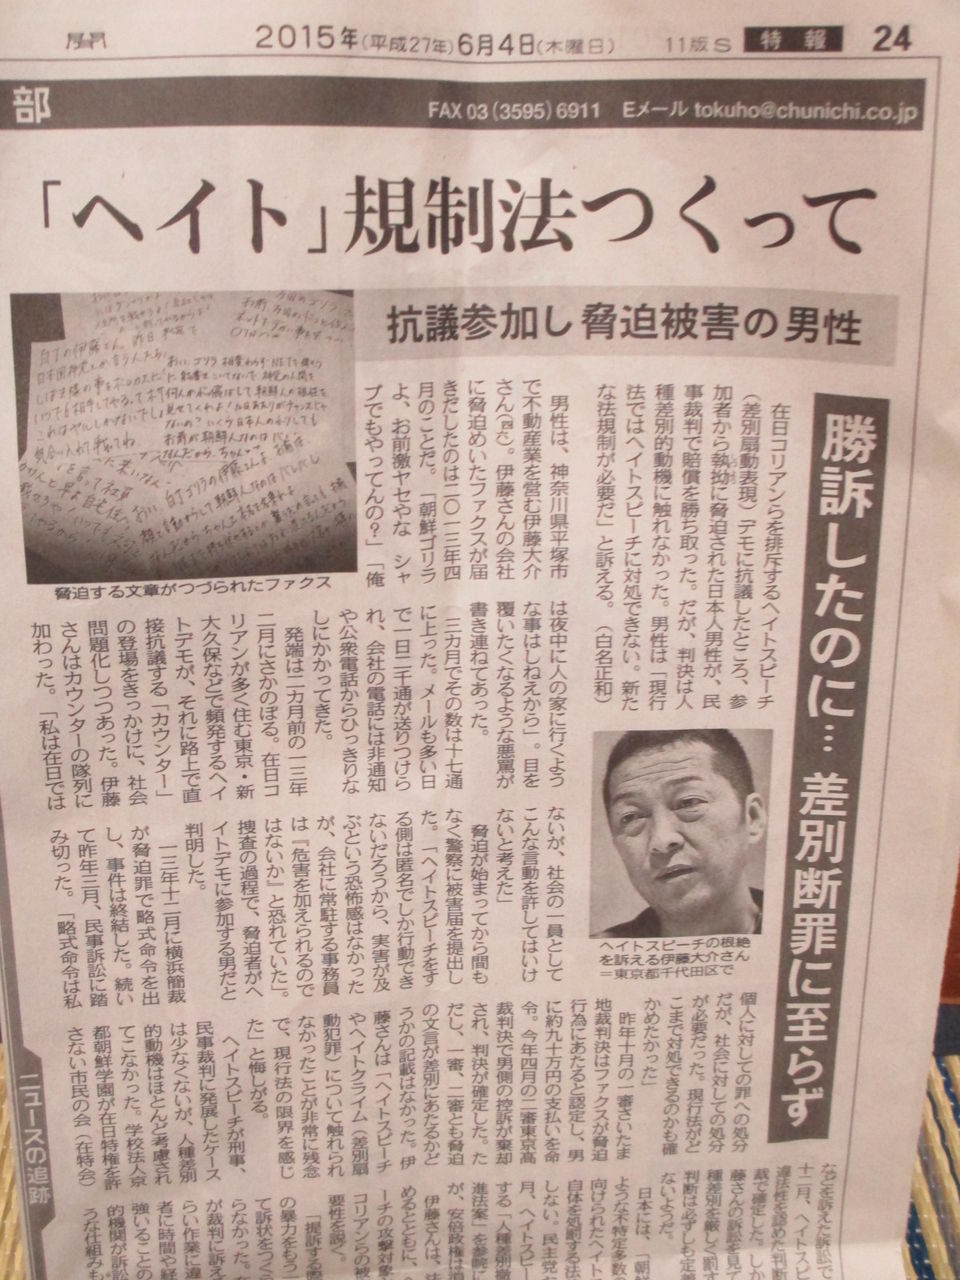 聞
2015年(平成27年)6月4日(木曜日)
11版S
特報
24
部
FAX 03(3595)6911 Eメール tokuho@chunichi.co.jp
「ヘイト」規制法つくって
抗議参加し脅迫被害の男性
勝訴したのに… 差別断罪に至らず
脅迫する文章がつづられたファクス
在日コリアンらを排斥するヘイトスピーチ
(差別扇動表現)デモに抗議したところ、参
加者から執拗に脅迫された日本人男性が、民
事裁判で賠償を勝ち取った。だが、判決は人
種差別的動機に触れなかった。男性は「現行
法ではヘイトスピーチに対処できない。新た
な法規制が必要だ」と訴える。(白名正和)
男性は、神奈川県平塚市
で不動産業を営む伊藤大介
さん(四六)。伊藤さんの会社
に脅迫めいたファクスが届
きだしたのは二〇一三年四
月のことだ。「朝鮮ゴリラ
よ、お前激ヤセやな シャ
ブでもやってんの?」「俺
は夜中に人の家に行くよう
な事はしねえから」。目を
覆いたくなるような悪罵が
書き連ねてあった。
三カ月でその数は十七通
に上った。メールも多い日
で一日二千通が送りつけら
れ、会社の電話には非通知
や公衆電話からひっきりな
しにかかってきた。
発端は二カ月前の一三年
二月にさかのぼる。在日コ
リアンが多く住む東京・新
大久保などで頻発するヘイ
トデモが、それに路上で直
接抗議する「カウンター」
の登場をきっかけに、社会
問題化しつつあった。伊藤
さんはカウンターの隊列に
加わった。「私は在日では
ないが、社会の一員として
こんな言動を許してはいけ
ないと考えた」
脅迫が始まってから間も
なく警察に被害届を提出し
た。「ヘイトスピーチをす
る側は匿名でしか行動でき
ないだろうから、実害が及
ぶという恐怖感はなかった
が、会社に常駐する事務員
は『危害を加えられるので
はないか』と恐れていた」。
捜査の過程で、脅迫者がヘ
イトデモに参加する男だと
判明した。
一三年十二月に横浜簡裁
が脅迫罪で略式命令を出
し、事件は終結した。続い
て昨年三月、民事訴訟に踏
み切った。「略式命令は私
ヘイトスピーチの根絶
を訴える伊藤大介さん
=東京都千代田区で
個人に対しての罪への処分
だが、社会に対しての処分
が必要だった。現行法がど
こまで対処できるのかも確
かめたかった」
昨年十月の一審さいたま
地裁判決はファクスが脅迫
行為にあたると認定し、男
に約九十万円の支払いを命
令。今年四月の二審東京高
裁判決で男側の控訴が棄却
され、判決が確定した。た
だし、一審、二審とも脅迫
の文言が差別にあたるかど
うかの記載はなかった。伊
藤さんは「ヘイトスピーチ
やヘイトクライム(差別扇
動犯罪)について触れられ
なかったことが非常に残念
で、現行法の限界を感じ
た」と悔しがる。
ヘイトスピーチが刑事、
民事裁判に発展したケース
は少なくないが、人種差別
的動機はほとんど考慮され
てこなかった。学校法人京
都朝鮮学園が在日特権を許
さない市民の会(在特会)
ニュースの追跡
などを訴えた訴訟で
十二月、ヘイトスピ
違法性を認めた判断
裁で確定した。しか
藤さんの訴訟を見て
種差別を厳しく罰す
判断は必ずしも定着
ないようだ。
日本には、「朝鮮
ような不特定多数
向けられたヘイト
自体を処罰する法
しない。民主党な
月、ヘイトスピー
する「人種差別撤
進法案」を参院に
が、安倍政権は消
伊藤さんは、法
めるとともに、ヘ
ーチの攻撃対象
コリアンらの被
要性を説く。
「提訴する際
の暴力をもう一
て訴状をつくら
らなかった。在
が裁判に訴え
らい作業に違
者に時間や経
強いることの
的機関が訴訟
うな仕組みも